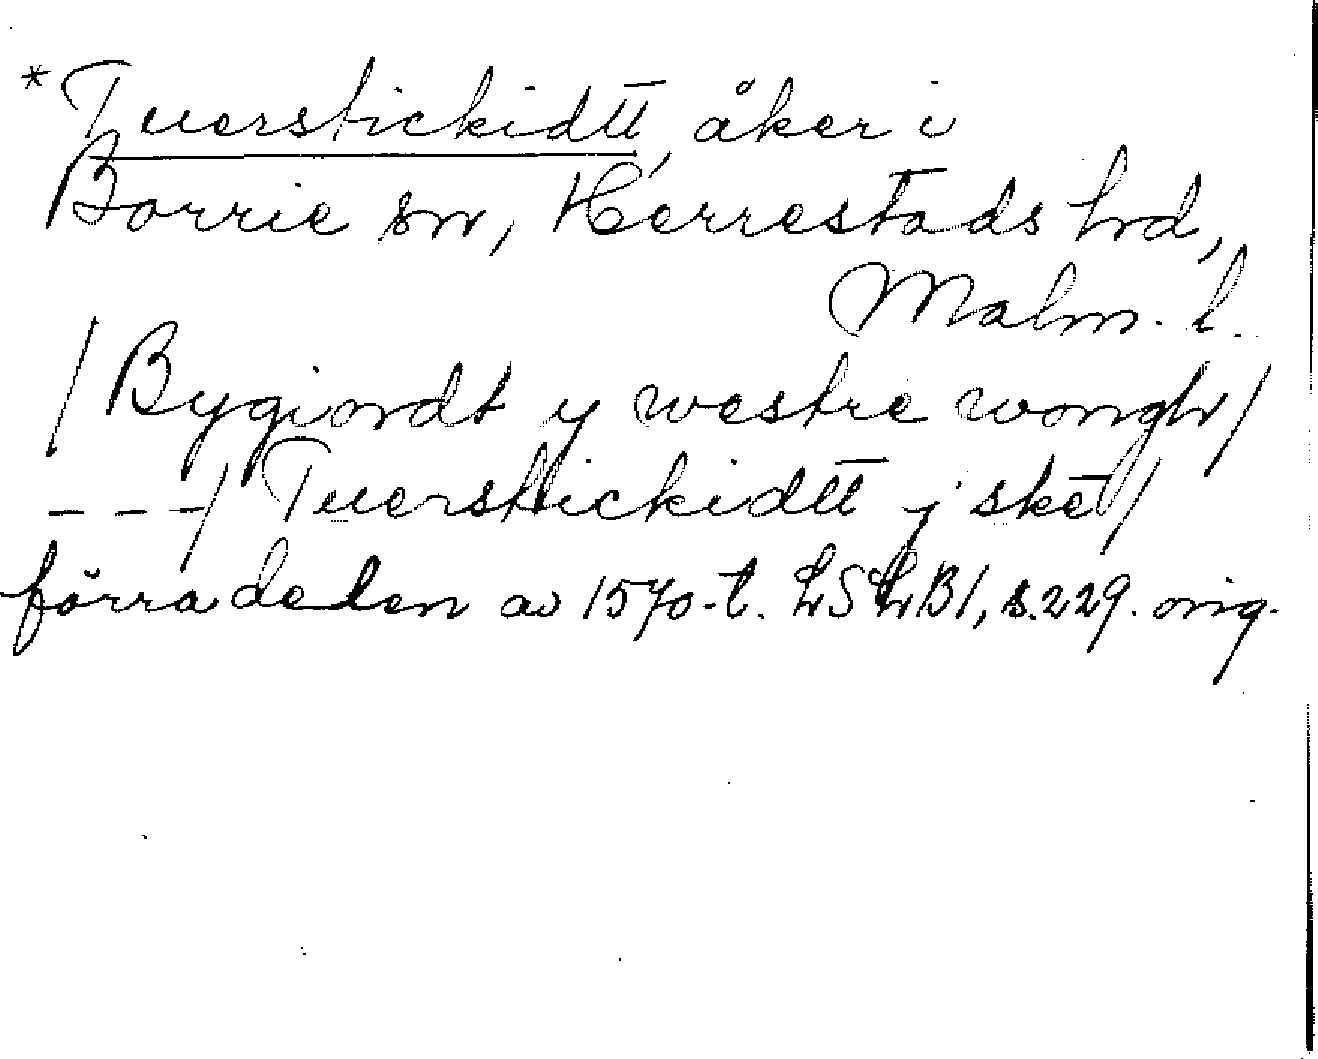 *Tuerstickidtt, åker i
Borrie sn, Herrestads hd,
Malm. l.
/ Bygiordt y westre wongh /
---/ Tuerstickidtt y sket /
förra delen av 1570-t. LSLB1, s.229. orig.